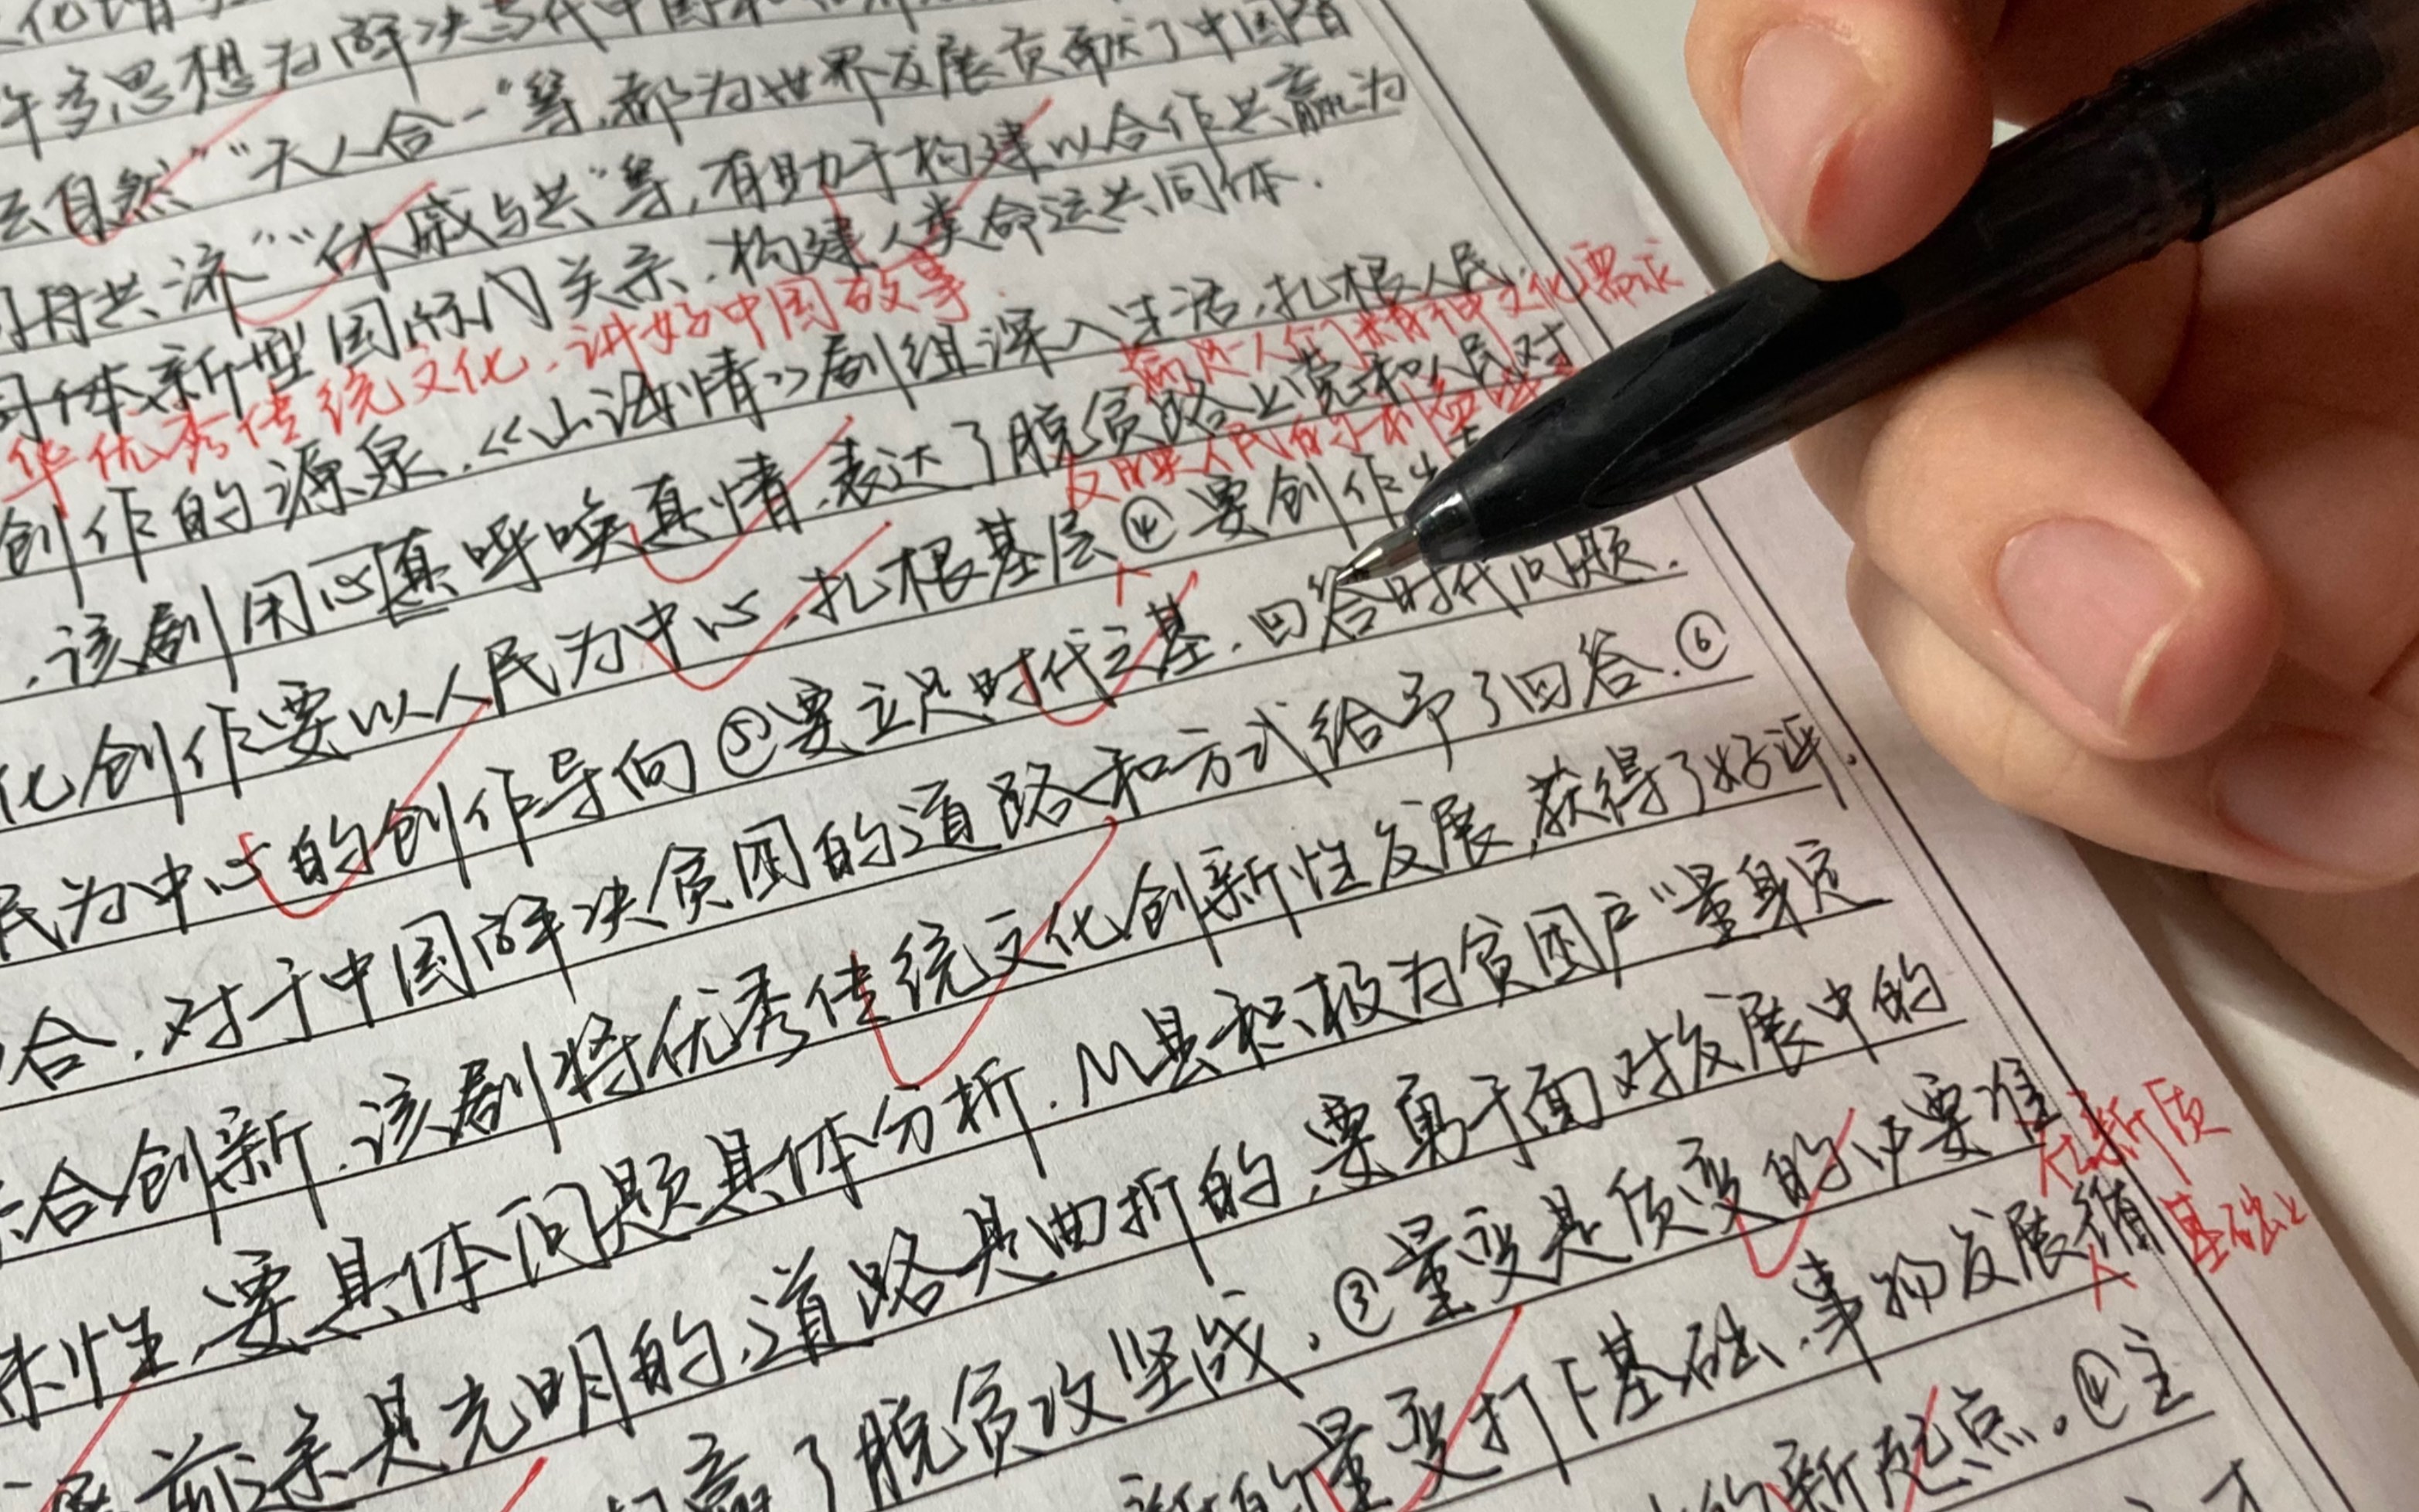 许多思想为解决当代中国和
自然”“天人合一”等,都为世界发展贡献了中国智
共济”“休戚与共”等,有助于构建以合作共赢为
新型国际关系.构建人类命运共同体.
华优秀传统文化,讲好中国故事.
创作的源泉.《山海情》剧组深入生活,扎根人民,
满足人们精神文化需求
.该剧用心真呼唤真情.表达了脱贫路上党和人民对
反映人民的
化创作要以人民为中心.扎根基层④要创作
民为中心的创作导向⑤要立足时代之基.回答时代问题.
合.对于中国解决贫困的道路和方式给予了回答.⑥
合创新.该剧将优秀传统文化创新性发展,获得了好评.
殊性,要具体问题具体分析.M县积极为贫困户“量身定
前途是光明的,道路是曲折的,要勇于面对发展中的
赢了脱贫攻坚战.③量变是质变的必要准
在新质
基础上
的量变打下基础.事物发展循
的新起点。④主